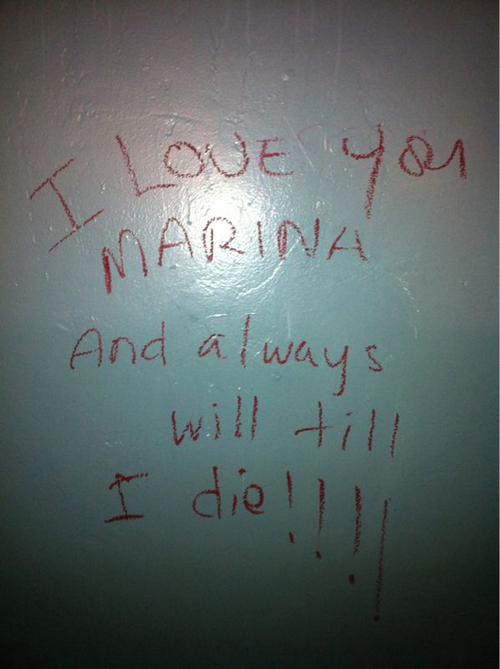 I LOVE YOU
MARINA
And always
will till
I die!!!!